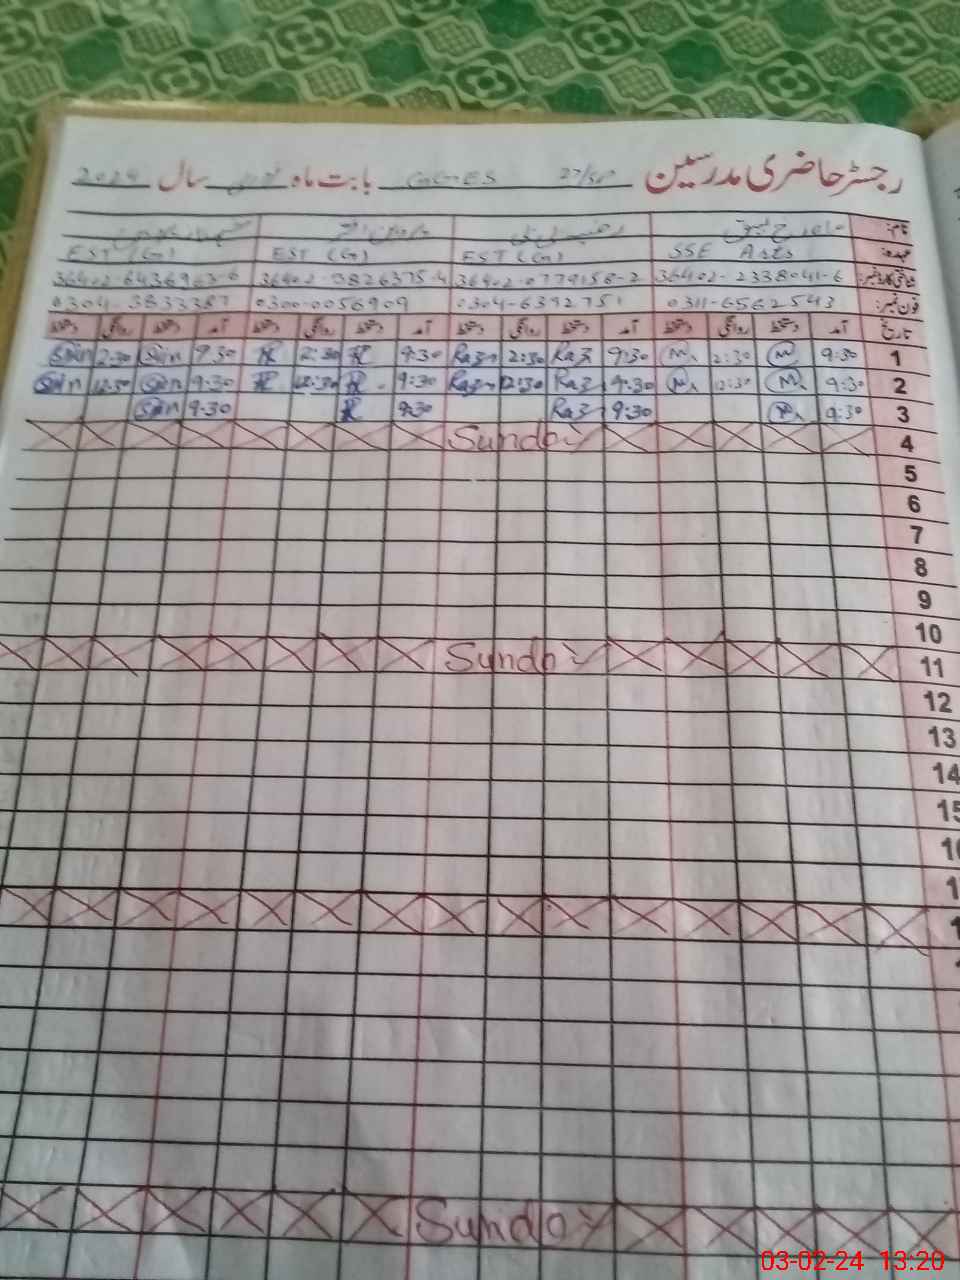 رجسٹر حاضری مدرسین 27/SP GGES بابت ماہ سال 2024
نام:
عہدہ: SSE Arts EST (G) EST (G) EST (G)
شناختی کارڈ نمبر: 36402-2338041-6 36402-0779158-2 36402-3826375-4 36402-6436963-6
فون نمبر: 0311-6562543 0304-6392751 0300-0056909 0304-3833387
تاریخ آمد دستخط روانگی دستخط آمد دستخط روانگی دستخط آمد دستخط روانگی دستخط آمد دستخط روانگی دستخط
1 9:30 2:30 9:30 Raz 2:30 Raz 9:30 2:30 9:30 2:30
2 9:30 12:30 9:30 Raz 12:30 Raz 9:30 12:30 9:30 12:30
3 9:30 9:30 Raz 9:30 9:30
4 Sunday
5
6
7
8
9
10
11 Sunday
12
13
14
15
Sunday
03-02-24 13:20